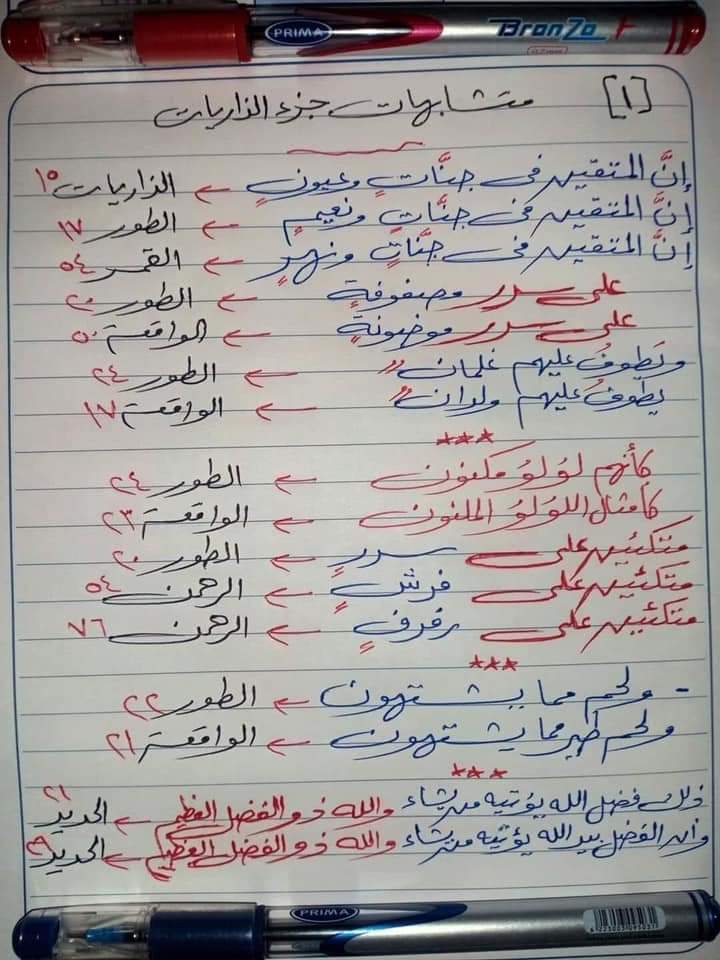 PRIMA BronZo F
[١] متشابهات جزء الذاريات
إنَّ المتقين فى جنَّاتٍ وعيونٍ ← الذاريات ١٥
إنَّ المتقين فى جنَّاتٍ ونعيمٍ ← الطور ١٧
إنَّ المتقين فى جنَّاتٍ ونهرٍ ← القمر ٥٤
على سرر مصفوفةٍ ← الطور ٢٠
على سرر موضونةٍ ← الواقعة ٥٠
ويَطوفُ عليهم غلمان" ← الطور ٢٤
يطوفُ عليهم ولدان" ← الواقعة ١٧
***
كأنهم لؤلؤ مكنون ← الطور ٢٤
كأمثال اللؤلؤ المكنون ← الواقعة ٢٣
متكئين على سررٍ ← الطور ٢٠
متكئين على فرشٍ ← الرحمن ٥٤
متكئين على رفرفٍ ← الرحمن ٧٦
***
- ولحم مما يشتهون ← الطور ٢٢
ولحم طير مما يشتهون ← الواقعة ٢١
***
ذلك فضل الله يؤتيه من يشاء والله ذو الفضل العظيم ← الحديد ٢١
وأن الفضل بيد الله يؤتيه من يشاء والله ذو الفضل العظيم ← الحديد ٢٩
PRIMA